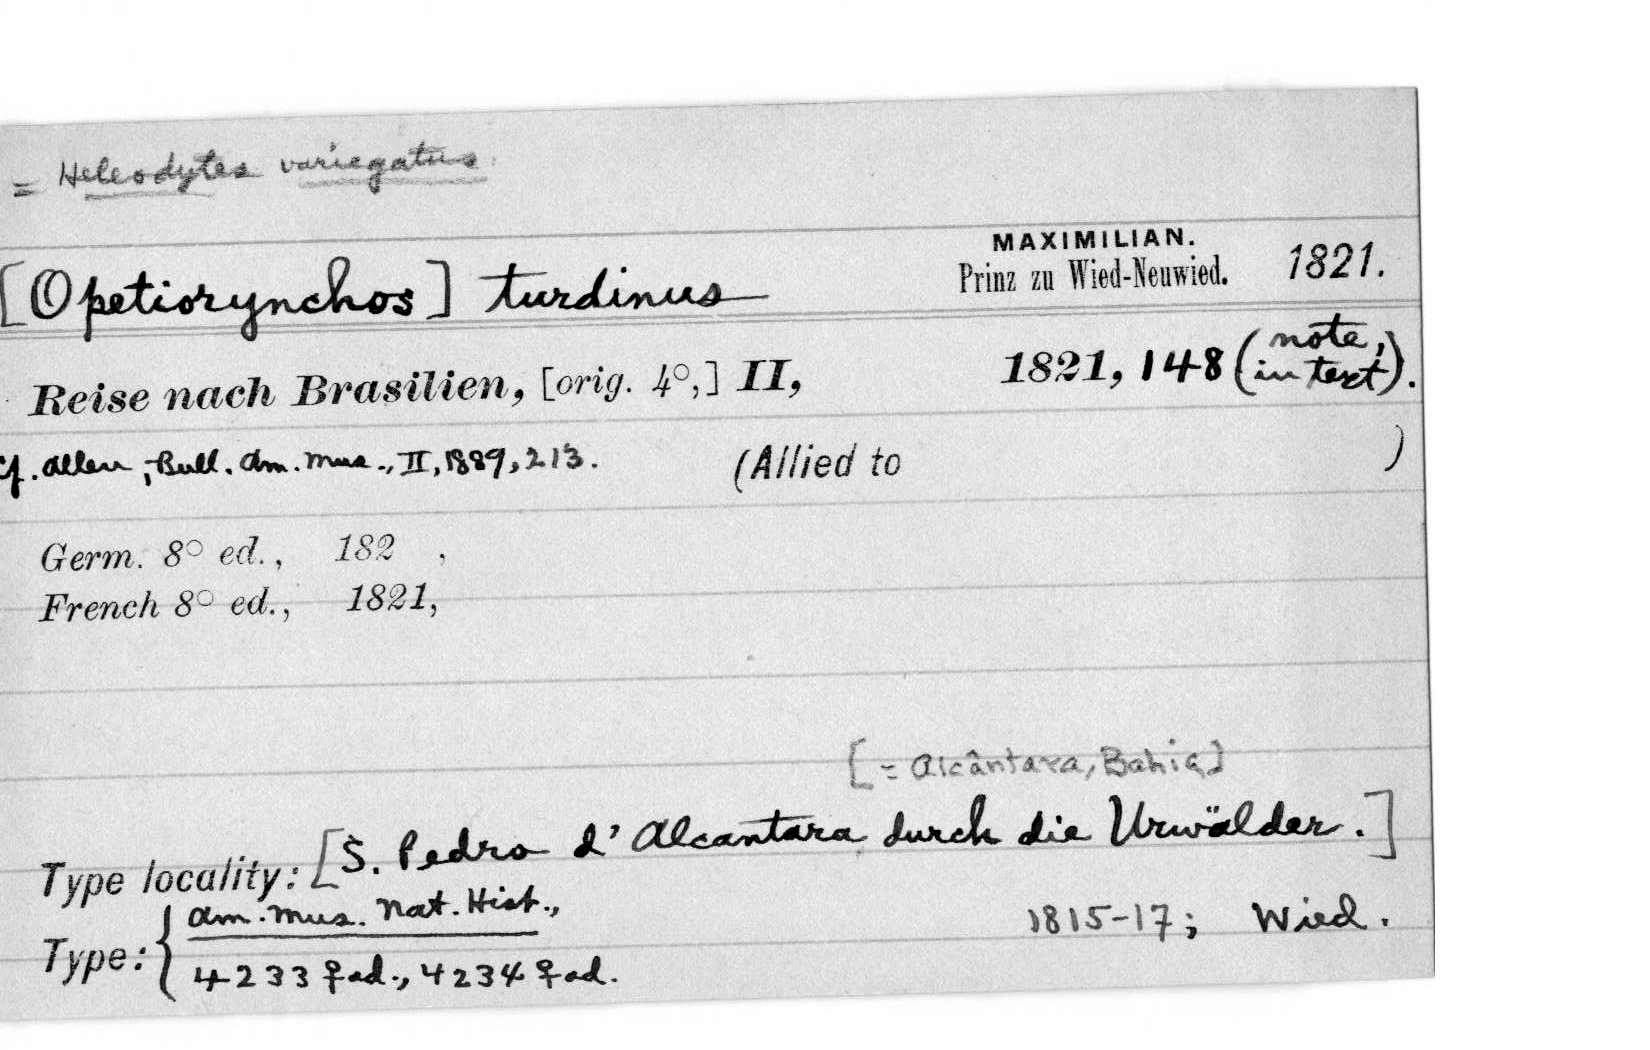 = Heleodytes variegatus.
MAXIMILIAN.
[Opetiorynchos] turdinus Prinz zu Wied-Neuwied. 1821.
Reise nach Brasilien, [orig. 4°,] II, 1821, 148 (note, in text).
Cf. Allen, Bull. Am. Mus., II, 1889, 213. (Allied to )
Germ. 8° ed., 182 ,
French 8° ed., 1821,
[= Alcântara, Bahia]
Type locality: [S. Pedro d'Alcantara durch die Urwälder.]
Type: { Am. Mus. Nat. Hist., 1815-17; Wied.
4233 ♀ ad., 4234 ♀ ad.